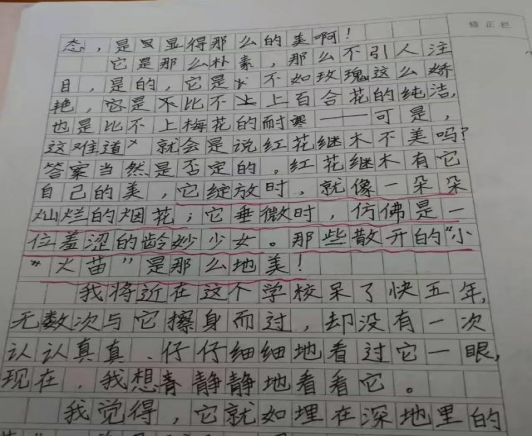 态，是显得那么的美啊！
它是那么朴素，那么不引人注
目，是的，它是不如玫瑰这么娇
艳，它是不比不上上百合花的纯洁，
也是比不上梅花的耐寒——可是，
这难道就会是说红花继木不美吗？
答案当然是否定的。红花继木有它
自己的美，它绽放时，就像一朵朵
灿烂的烟花；它垂微时，仿佛是一
位羞涩的龄妙少女。那些散开的“小
“火苗”是那么地美！
我将近在这个学校呆了快五年，
无数次与它擦身而过，却没有一次
认认真真、仔仔细细地看过它一眼，
现在，我想静静地看看它。
我觉得，它就如埋在深地里的
矫正栏